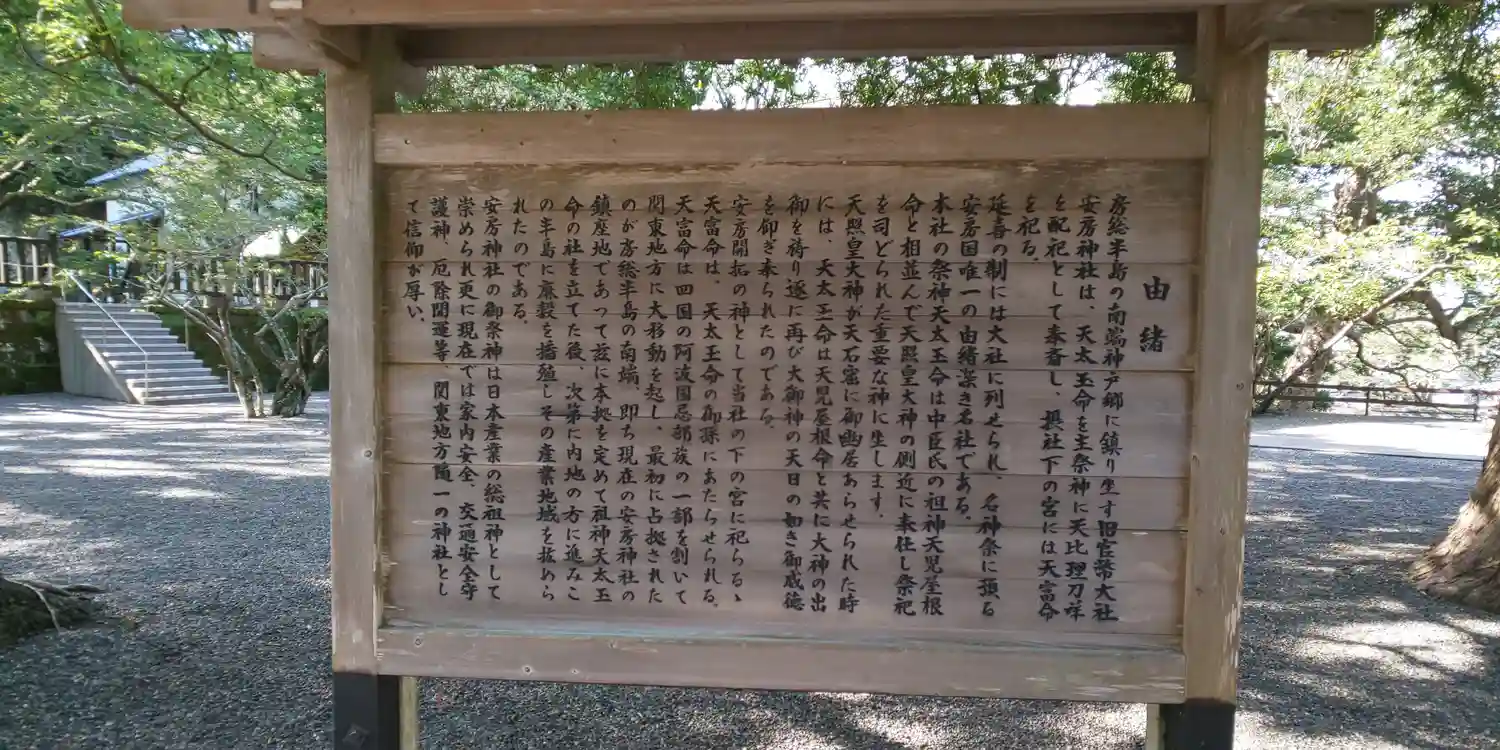 由緒
房総半島の南端神戸郷に鎮り坐す旧官幣大社
安房神社は、天太玉命を主祭神に天比理刀咩
を配祀として奉斎し、摂社下の宮には天富命
を祀る。
延喜の制には大社に列せられ、名神祭に預る
安房国唯一の由緒深き名社である。
本社の祭神天太玉命は中臣氏の祖神天児屋根
命と相並んで天照皇大神の側近に奉仕し祭祀
を司どられた重要な神に生します。
天照皇大神が天石窟に御幽居あらせられた時
には、天太玉命は天児屋根命と共に大神の出
御を祷り遂に再び大御神の天日の如き御威徳
を仰ぎ奉られたのである。
安房開拓の神として当社の下の宮に祀らるゝ
天富命は、天太玉命の御孫にあたらせられる。
天富命は四国の阿波国忌部族の一部を割いて
関東地方に大移動を起し、最初に占拠された
のが房総半島の南端、即ち現在の安房神社の
鎮座地であって茲に本拠を定めて祖神天太玉
命の社を立てた後、次第に内地の方に進みこ
の半島に麻穀を播殖しその産業地域を拡めら
れたのである。
安房神社の御祭神は日本産業の総祖神として
崇められ更に現在では家内安全、交通安全守
護神、厄除開運等、関東地方随一の神社とし
て信仰が厚い。